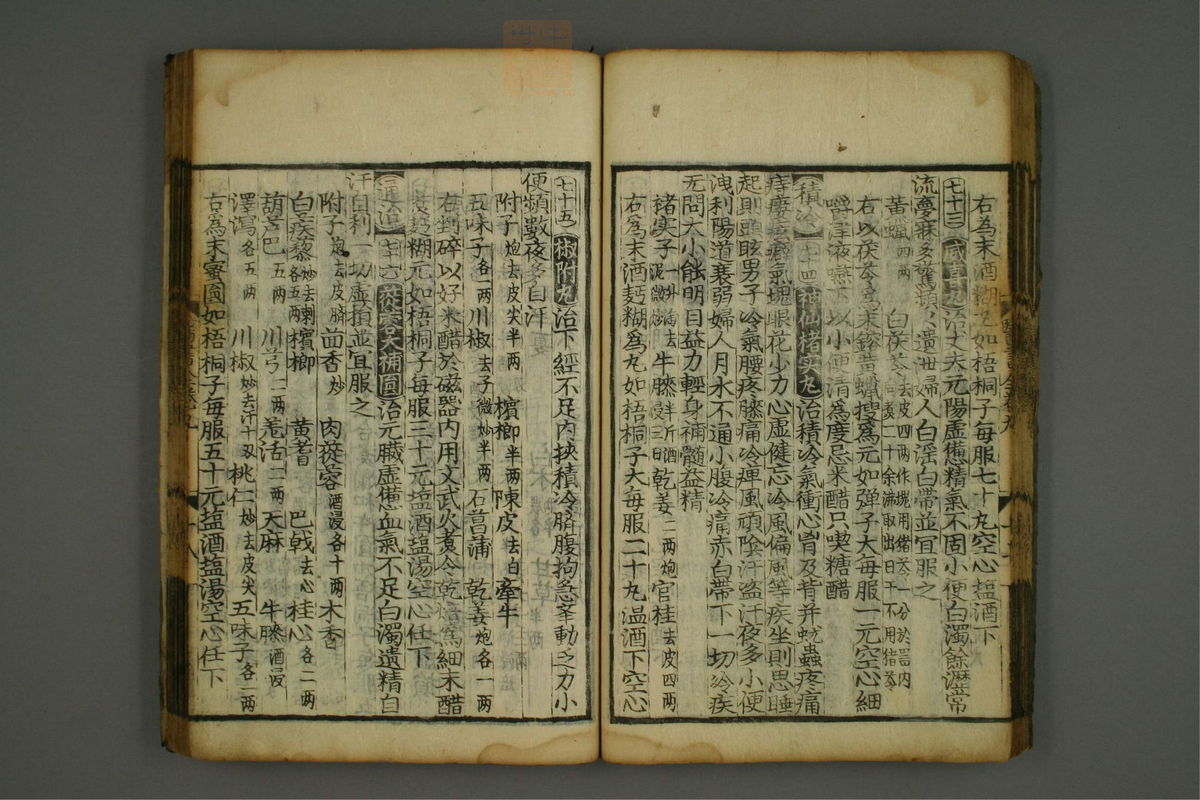 右爲末酒糊丸如梧桐子每服七十丸空心塩酒下
七十三 威喜丸 治丈夫元陽虛憊精氣不固小便白濁餘瀝常
流夢寐多驚頻遺泄婦人白淫白帶並宜服之
黃蠟四兩 白茯苓去皮四兩作塊用猪苓一分於器内 二十余沸取出日干不用猪苓
右以茯苓爲末鎔黃蠟搜爲元如弹子大每服一元空心細
嚼津液嚥下以小便清爲度忌米醋只喫糖醋
積冷 七十四 神仙楮实丸 治積冷氣衝心胷及背并蚘蟲疼痛
痔瘻痃癖氣塊眼花少力心虛健忘冷風偏風等疾坐則思睡
起則頭眩男子冷氣腰疼膝痛冷痺風頑陰汗盜汗夜多小便
洩利陽道衰弱婦人月水不通小腹冷痛赤白帶下一切冷疾
无問大小能明目益力輕身補髓益精
楮实子一升 牛膝半斤酒浸三日 乾姜二兩炮 官桂去皮四兩
右爲末酒麪糊爲丸如梧桐子大每服二十丸温酒下空心
七十五 椒附丸 治下經不足内挾積冷臍腹拘急举動乏力小
便頻數夜多自汗
附子炮去皮尖半兩 檳榔半兩 陳皮去白 牽牛
五味子各一兩 川椒去子微炒半兩 石菖蒲 乾姜炮各一兩
右剉碎以好米醋於磁器内用文武火煮令乾焙爲細末醋
煮麪糊元如梧桐子每服三十元塩酒塩湯空心任下
七十六 蓯蓉大補圓 治元臟虛憊血氣不足白濁遺精自
汗自利一切虛損並宜服之
附子炮去皮臍 茴香炒 肉蓯蓉酒浸各十兩 木香
白疾藜炒去刺各五兩 檳榔 黃耆 巴戟去心 桂心各二兩
葫芦巴五兩 川芎二兩 羌活二兩 天麻 牛膝酒浸
澤瀉各五兩 川椒炒去汗十兩 桃仁炒去皮尖 五味子各一兩
右爲末蜜圓如梧桐子每服五十元塩酒塩湯空心任下